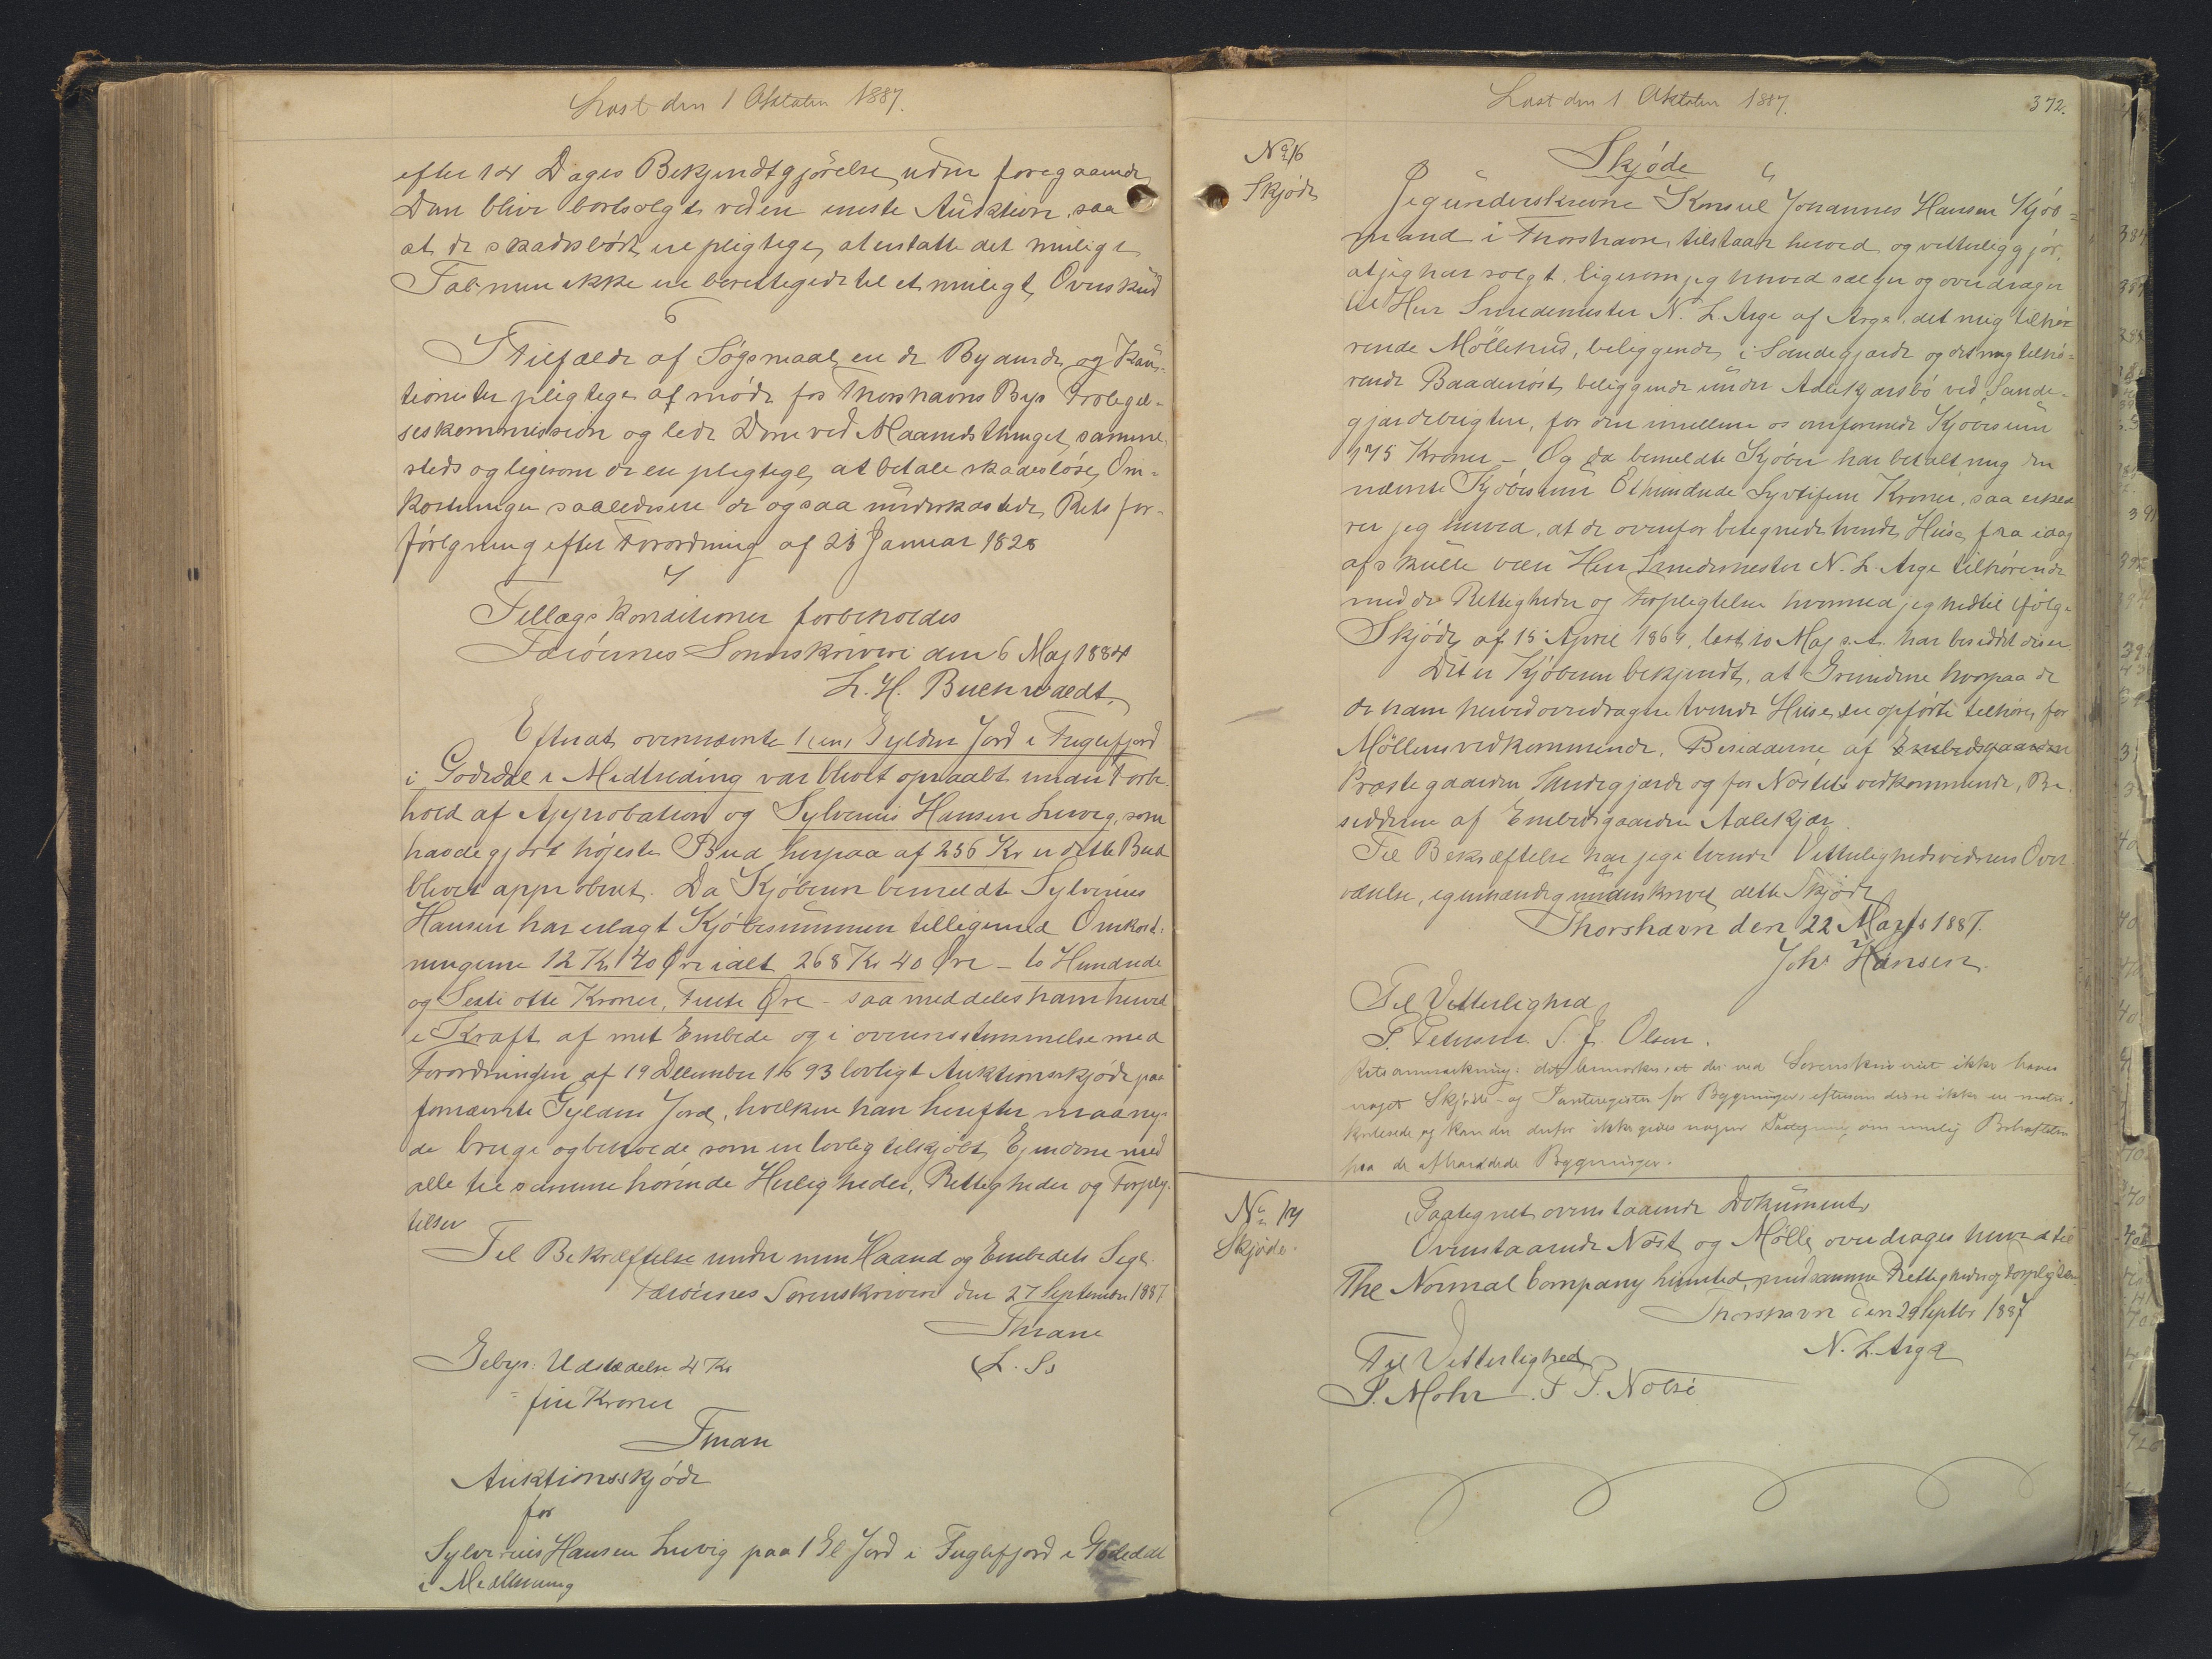 Læst den 1 Oktober 1887.
efter 14 Dages Bekjendtgjörelse uden foregaaende
Dom blive bortsolgt ved en eneste Auktion, saa
at de skadesløst ere pligtige at erstatte det mulige
Tab men ikke ere berettigede til et muligt Overskud
6
I Tilfælde af Søgsmaal ere de Bydende og Kau-
tionister pligtige at møde for Thorshavns Bys Forligel-
seskommission og lide Dom ved Maanedsthinget samme-
steds og ligesom de ere pligtige at betale skadesløse Om-
kostninger saaledes ere de ogsaa underkastede Rets for-
følgning efter Forordning af 23 Januar 1828
7
Tillægs Konditioner forbeholdes
Færöernes Sorenskriveri den 6 Maj 1884
L. H. Buchwaldt.
Efterat ovennævnte 1 (en) Gylden Jord i Fuglefjord
i Godedal i Medtreding var blevet opraabt under Forbe-
hold af Approbation og Sylverius Hansen Lervig, som
havde gjort højeste Bud herpaa af 256 Kr er dette Bud
blevet approberet. Da Kjøberen bemeldte Sylverius
Hansen har erlagt Kjøbesummen tilligemed Omkost-
ningerne 12 Kr 40 Øre ialt 268 Kr 40 Øre – to Hundrede
og Sexti otte Kroner, Firti Øre – saa meddeles ham herved
i Kraft af mit Embede og i overensstemmelse med
Forordningen af 19 December 1693 lovligt Auktionsskjøde paa
fornævnte Gylden Jord, hvilken han herefter maa ny-
de bruge og beholde som en lovlig tilskjødt Ejendom med
alle til samme hørende Herligheder, Rettigheder og Forplig-
telser
Til Bekræftelse under min Haand og Embedets Segl.
Færöernes Sorenskriveri den 27 September 1887
Thrane
Gebyr: Udstedelse 4 Kr L. Ss
= fire Kroner
Thrane
Auktionsskjöde
for
Sylverius Hansen Lervig paa 1 Gl Jord i Fuglefjord i Godedal
i Medtreding
Læst den 1 Oktober 1887. 372.
No 16
Skjøde
Skjøde
Jeg underskrevne Konsul Johannes Hansen Kjöb-
mand i Thorshavn tilstaar herved og vitterliggjör,
at jeg har solgt, ligesom jeg herved sælger og overdrager
til Herr Smedemester N. L. Arge af Arge, det mig tilhö-
rende Möllehus, beliggende i Sandegjærde og det mig tilhö-
rende Baadenöst beliggende under Aalekjærsbö ved Sande-
gjærdebugten, for den imellem os omforenede Kjöbesum
175 Kroner – Og da bemeldte Kjöber har betalt mig den
nævnte Kjöbesum Ethundrede Syvtifem Kroner, saa erklæ-
rer jeg herved, at de ovenfor betegnede tvende Huse fra idag
af skulle være Herr Smedemester N. L. Arge tilhörende
med de Rettigheder og Forpligtelser hvormed jeg hidtil ifölge
Skjöde af 15 April 1867, læst 10 Maj s. A. har besiddet disse.
Det er Kjöberen bekjendt, at Grundene hvorpaa de
de ham herved overdragne tvende Huse ere opförte tilhöre, for
Möllens vedkommende, Besidderne af Embedsgaarden
Præstegaarden Sandegjærde og for Nöstets vedkommende, Be-
sidderne af Embedsgaarden Aalekjær.
Til Bekræftelse har jeg i tvende Vitterlighedsvidners Over-
værelse, egenhændig underskrevet dette Skjöde
Thorshavn den 22 Marts 1887.
Johs Hansen.
Til Vitterlighed
P. Petersen. S. J. Olsen.
Retsanmærkning: det bemærkes, at der ved Sorenskriveriet ikke haves
noget Skjøde- og Panteregister for Bygninger, eftersom disse ikke ere matri-
kulerede og kan der derfor ikke gives nogen Paategning om mulig Behæftelse
paa de afhændede Bygninger.
No 17
Skjøde.
Paategnet ovenstaaende Dokument
Ovenstaaende Nöst og Mölle overdrages herved til
The Normal Company limited, med samme Rettigheder og Forpligtelser
Thorshavn den 29 Septbr 1887
N. L. Arge
Til Vitterlighed
P. Mohr. P. P. Nolsö